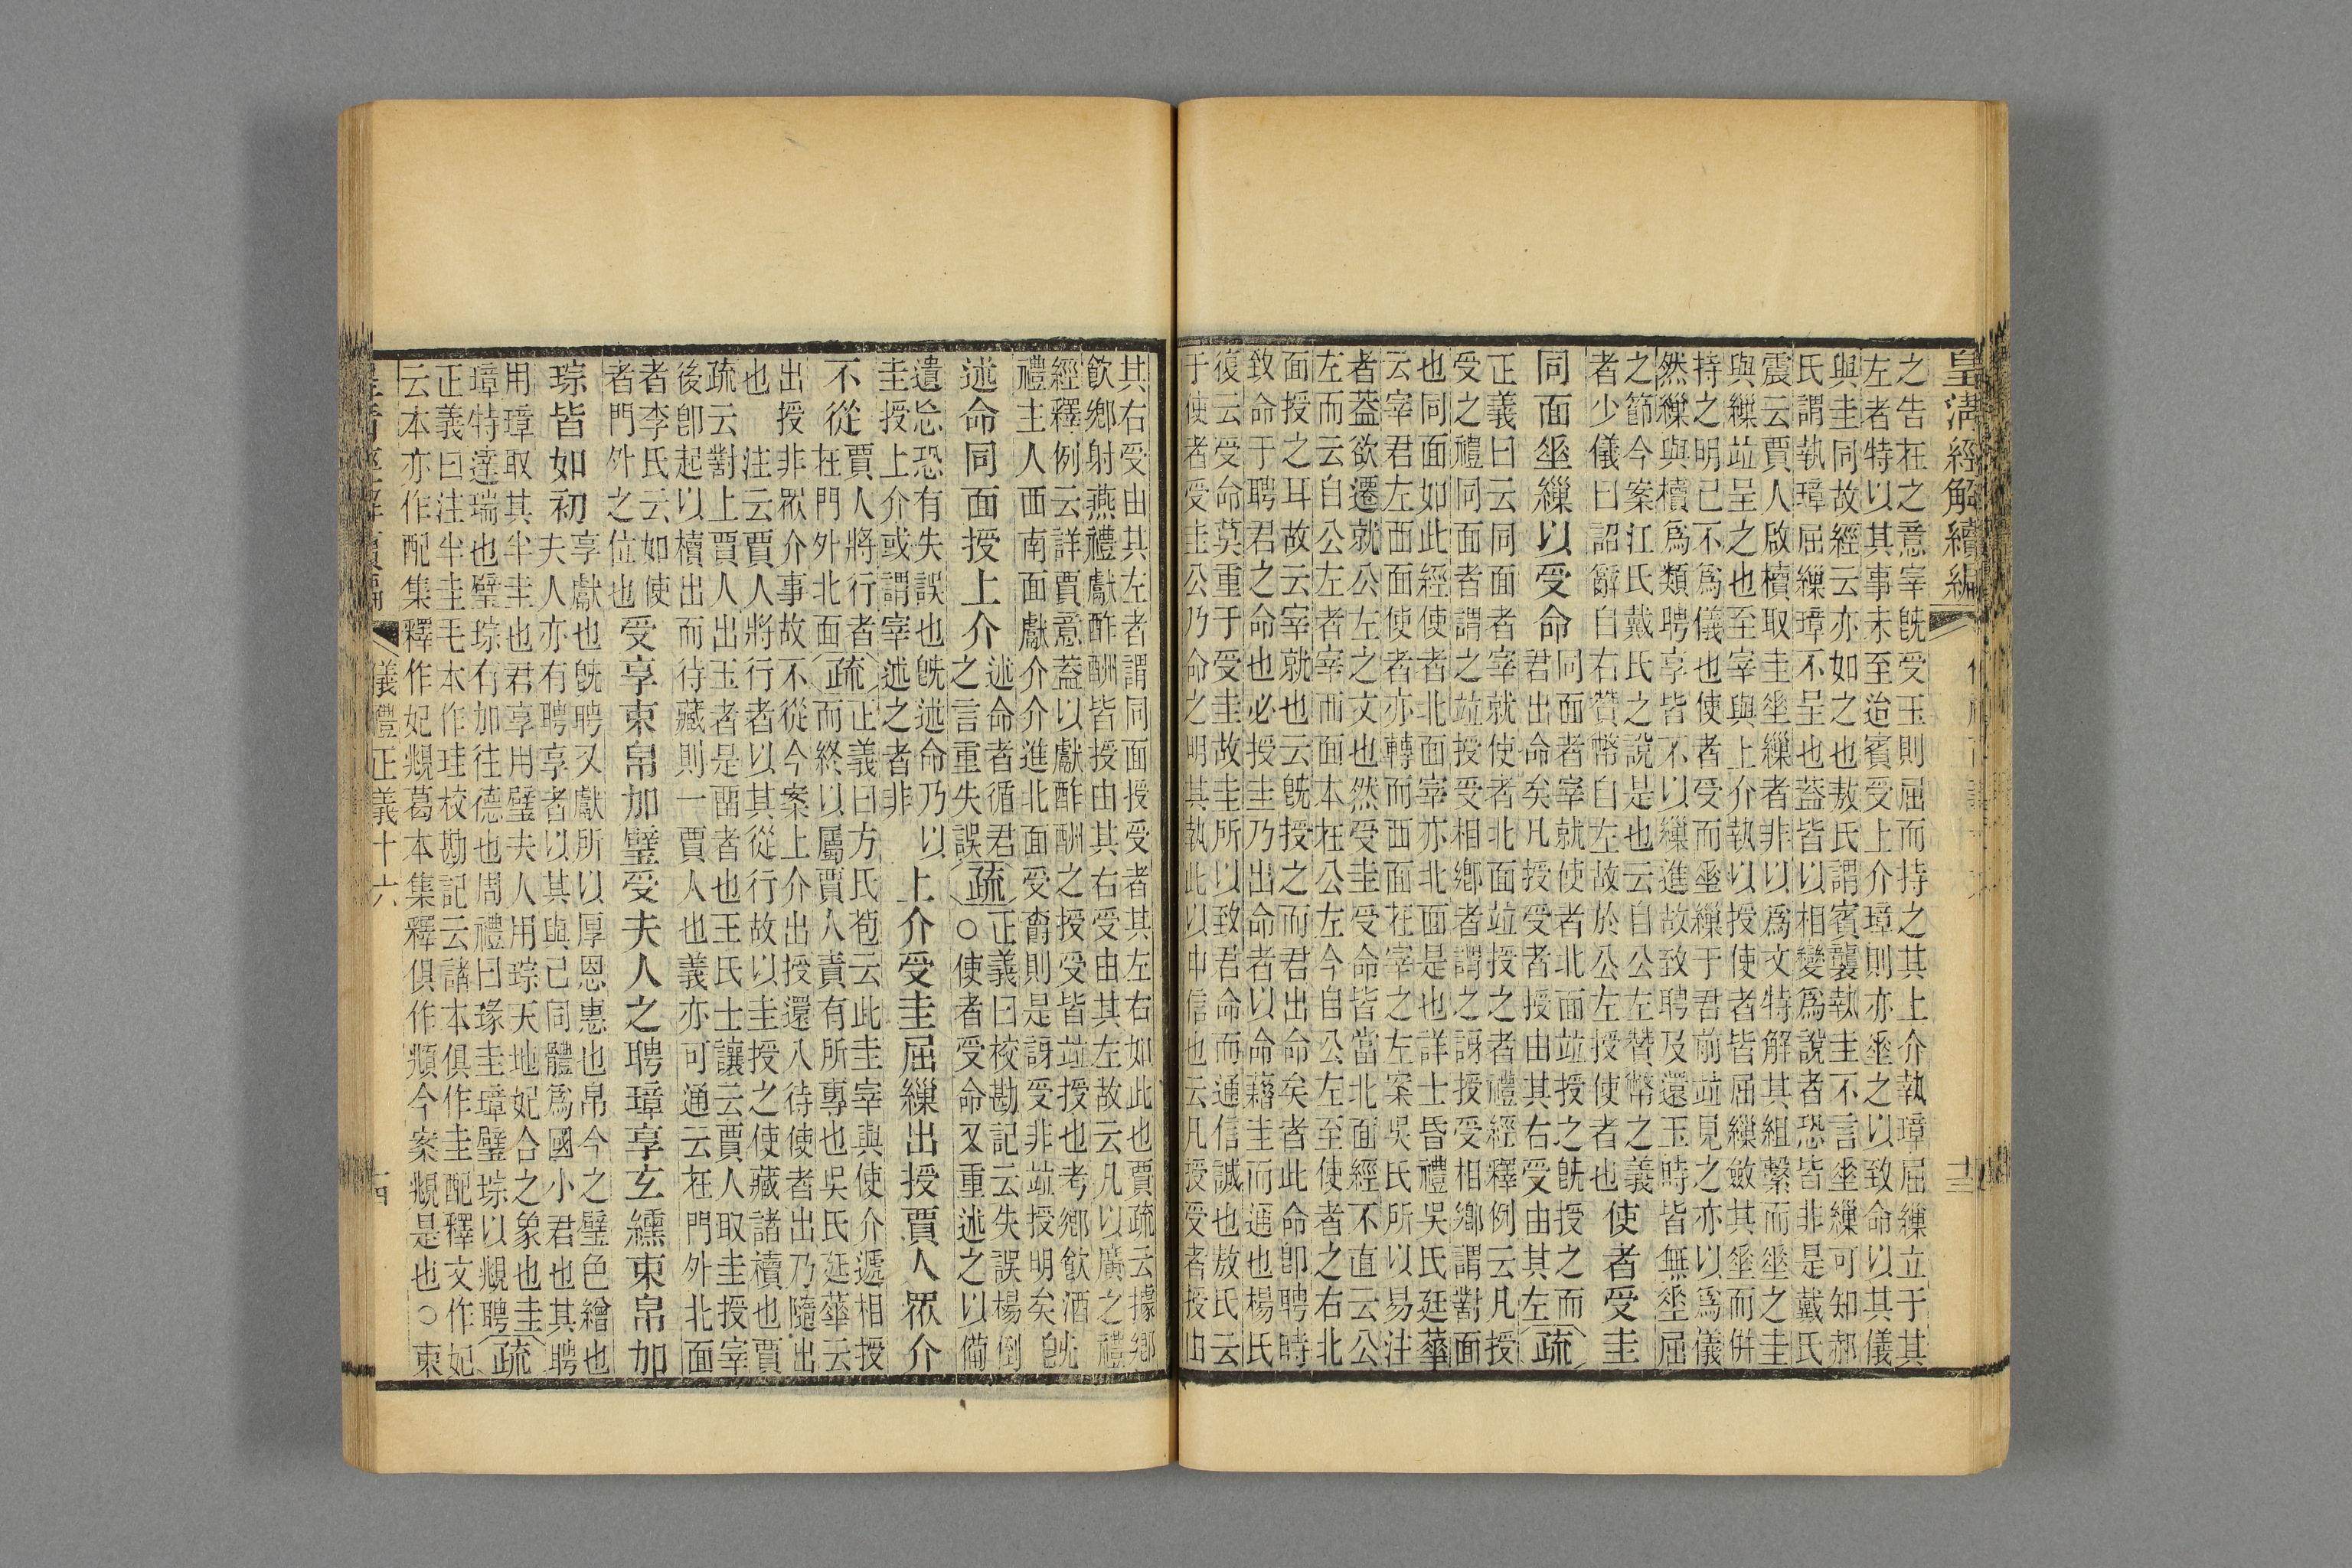 皇清經解續編
十三
之告在之意宰旣受玉則屈而持之其上介執璋屈繅立于其
左者特以其事未至治賓受上介璋則亦垂之以致命以其儀
與圭同故經云亦如之也敖氏謂賓襲執圭不言垂繅可知郝
氏謂執璋屈繅璋不呈也葢皆以相變爲說者恐皆非是戴氏
震云賈人啟櫝取圭垂繅者非以爲文特解其組繫而垂之圭
與繅竝呈之也至宰與上介執以授使者皆屈繅斂其垂而倂
持之明已不爲儀也使者受而垂繅于君前竝見之亦以爲儀
然繅與櫝爲類聘享皆不以繅進故致聘及還玉時皆無垂屈
之節今案江氏戴氏之說是也云自公左贊幣之義
者少儀曰詔辭自右贊幣自左故於公左授使者也
使者受圭
同面垂繅以受命
同面者宰就使者北面竝授之旣授之而
君出命矣凡授受者授由其右受由其左
疏
正義曰云同面者宰就使者北面竝授之者禮經釋例云凡授
受之禮同面者謂之竝授受相鄉者謂之訝授受相鄉謂對面
也同面如此經使者北面宰亦北面是也詳士昏禮吳氏廷華
云宰君左西面使者亦轉而西面在宰之左案吳氏所以易注
者葢欲遷就公左之文也然受圭受命皆當北面經不直云公
左而云自公左者宰西面本在公左今自公左至使者之右北
面授之耳故云宰就也云旣授之而君出命矣者此命卽聘時
致命于聘君之命也必授圭乃出命者以命藉圭而通也楊氏
復云受命莫重于受圭故圭所以致君命而通信誠也敖氏云
于使者受圭公乃命之明其執此以申信也云凡授受者授由
其右受由其左者謂同面授受者其左右如此也賈疏云據鄉
飮鄉射燕禮獻酢酬皆授由其右受由其左故云凡以廣之禮
經釋例云詳賈意葢以獻酢酬之授受皆竝授也考鄉飮酒
禮主人西南面獻介介進北面受爵則是訝受非竝授明矣
述命同面授上介
述命者循君
之言重失誤
疏
正義曰校勘記云失誤楊倒
○使者受命又重述之以備
遺忘恐有失誤也旣述命乃以
圭授上介或謂宰述之者非
上介受圭屈繅出授賈人眾介
不從
賈人將行者
在門外北面
疏
正義曰方氏苞云此圭宰與使介遞相授
而終以屬賈人責有所專也吳氏廷華云
出授非眾介事故不從今案上介出授還入待使者出乃隨出
也 注云賈人將行者以其從行故以圭授之使藏諸櫝也賈
疏云對上賈人出玉者是留者也王氏士讓云賈人取圭授宰
後卽起以櫝出而待藏則一賈人也義亦可通云在門外北面
者李氏云如使
者門外之位也
受享束帛加璧受夫人之聘璋享玄纁束帛加
琮皆如初
享獻也旣聘又獻所以厚恩惠也帛今之璧色繒也
夫人亦有聘享者以其與己同體爲國小君也其聘
用璋取其半圭也君享用璧夫人用琮天地妃合之象也圭
璋特達瑞也璧琮有加往德也周禮曰瑑圭璋璧琮以覜聘
疏
正義曰注半圭毛本作珪校勘記云諸本俱作圭配釋文作妃
云本亦作配集釋作妃覜葛本集釋俱作頫今案覜是也○束
儀禮正義十六
十四